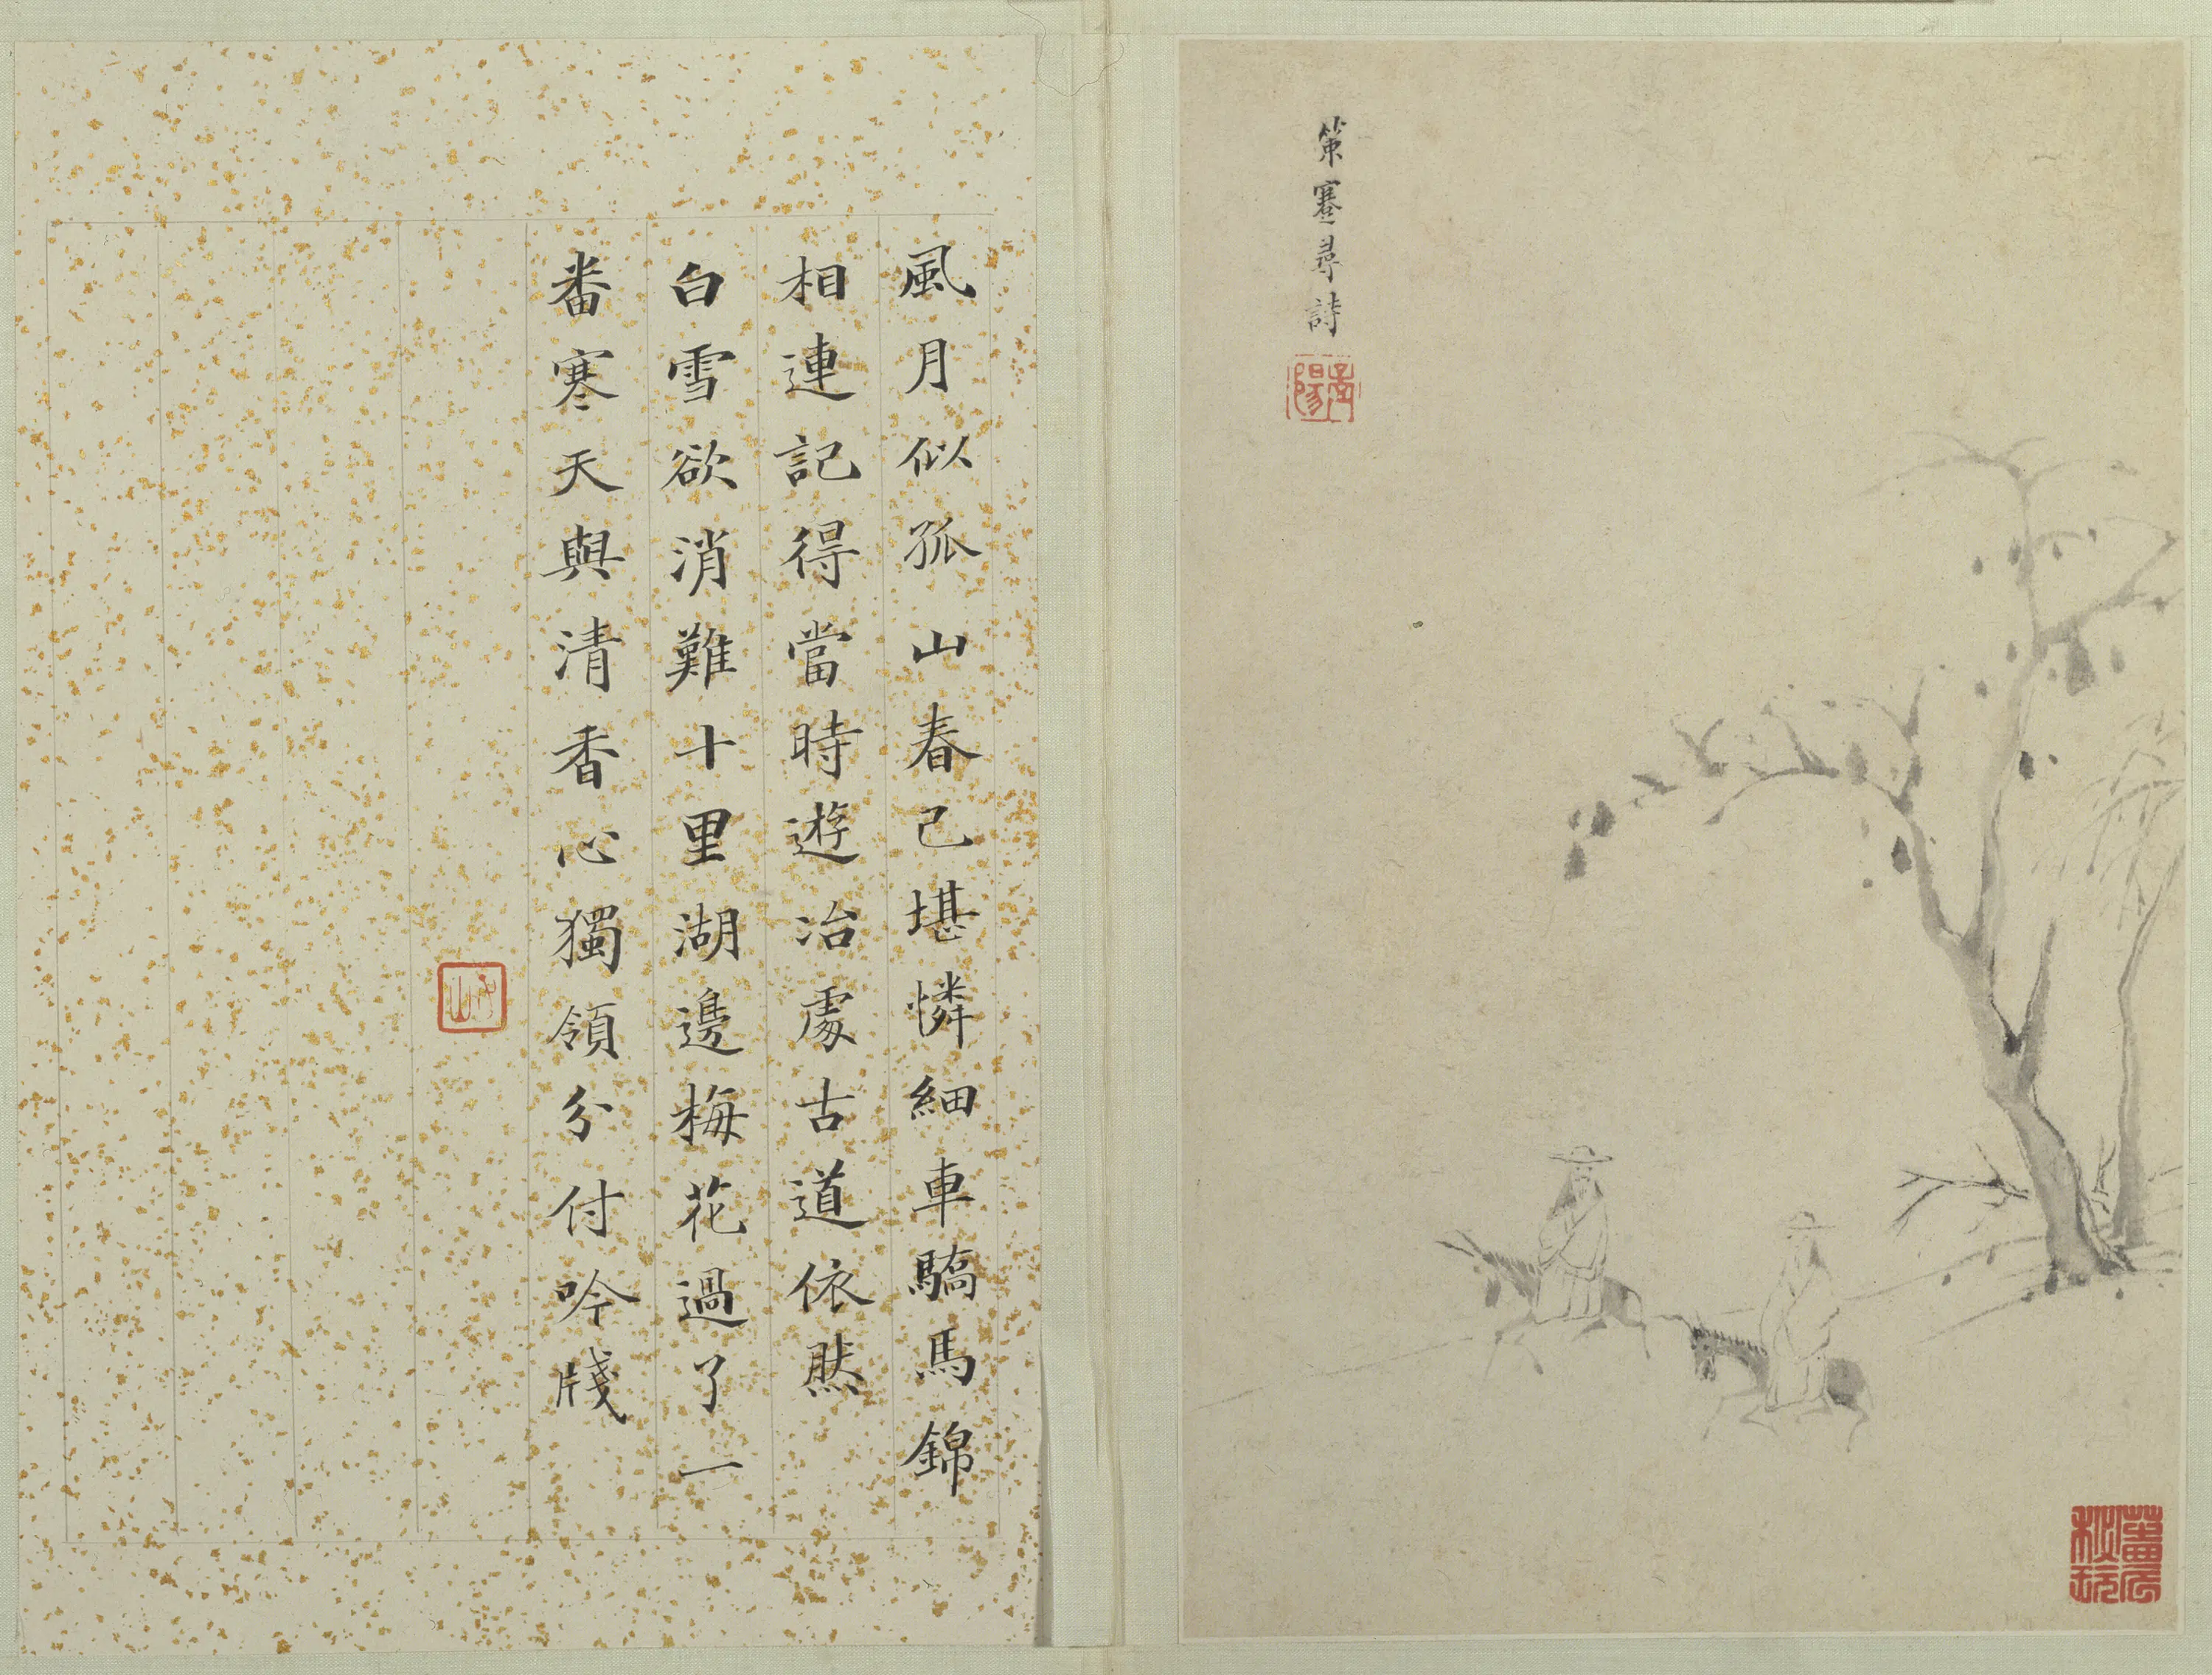 策蹇尋詩
風月似孤山春己堪憐細車驕馬錦
相連記得當時遊冶處古道依然
白雪欲消難十里湖邊梅花過了一
番寒天與清香心獨領分付吟牋